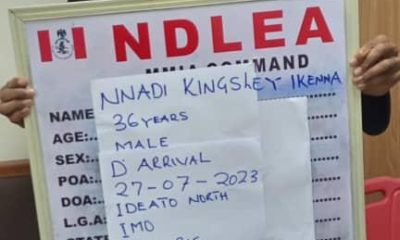 NDLEA
MMIA COMMAND
NAME NNADI KINGSLEY IKENNA
AGE:... 36 YEARS
SEX:... MALE
POA:... D' ARRIVAL
DOA:... 27-07-2023
L.G.A: IDEATO NORTH
STATE IMO